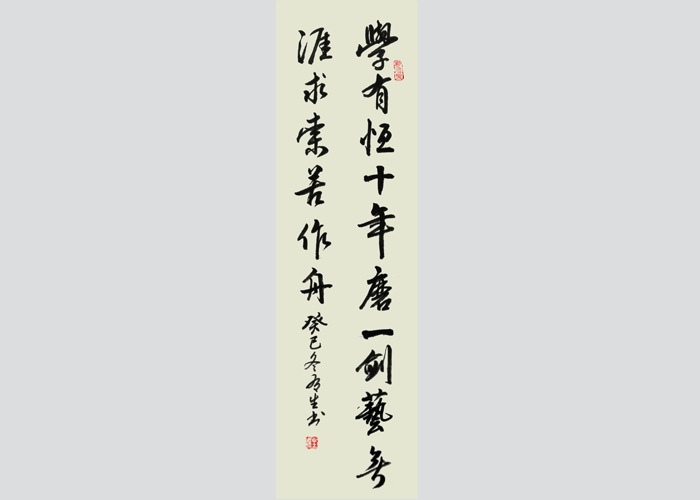 學有恒十年磨一劍藝無
涯求索苦作舟
癸巳冬有生書